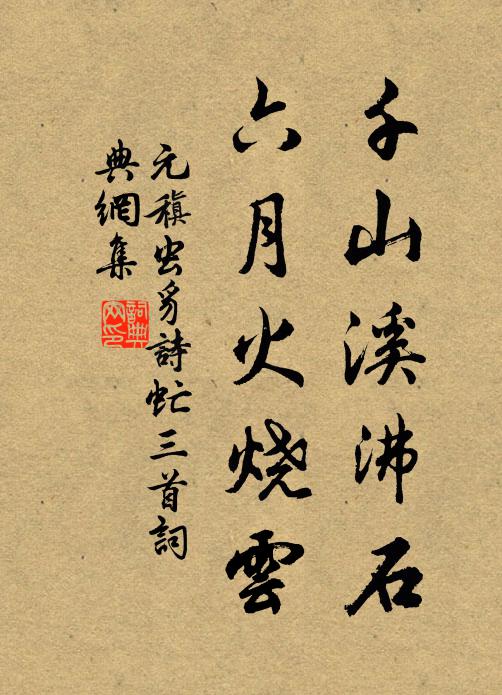 千山溪沸石
六月火烧雲
元稹虫豸詩虻三首詞
典網集
詞典
网印